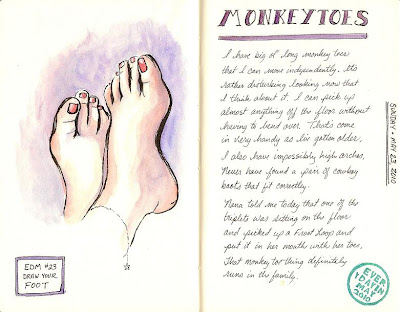 EDM #23
DRAW YOUR
FOOT
MONKEYTOES
I have big ol' long monkey toes
that I can move independently. It's
rather disturbing looking now that
I think about it. I can pick up
almost anything off the floor without
having to bend over. That's come
in very handy as I've gotten older.
I also have impossibly high arches.
Never have found a pair of cowboy
boots that fit correctly.
Nana told me today that one of the
triplets was sitting on the floor
and picked up a Froot Loop and
put it in her mouth with her toes.
That monkey toe thing definitely
runs in the family.
SUNDAY · MAY 23, 2010
EVERY
DAY IN
MAY
2010